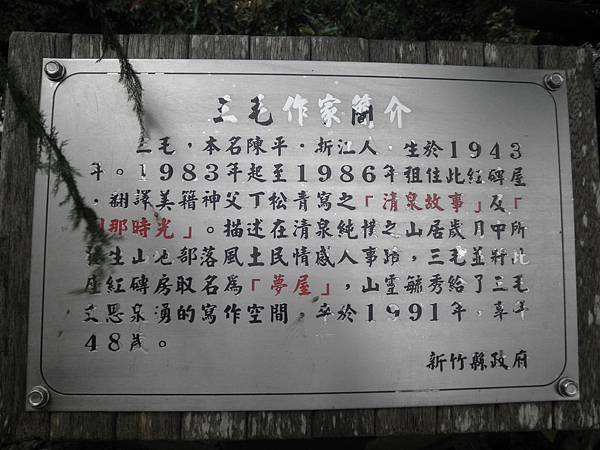 三毛作家簡介
三毛，本名陳平．折江人．生於1943
年。1983年起至1986年租住此紅磚屋
．翻譯美籍神父丁松青寫之「清泉故事」及「
剎那時光」。描述在清泉純樸之山居歲月中所
發生山地部落風土民情感人事蹟，三毛並將此
座紅磚房取名為「夢屋」，山靈毓秀給了三毛
文思泉湧的寫作空間，卒於1991年，享年
48歲。
新竹縣政府